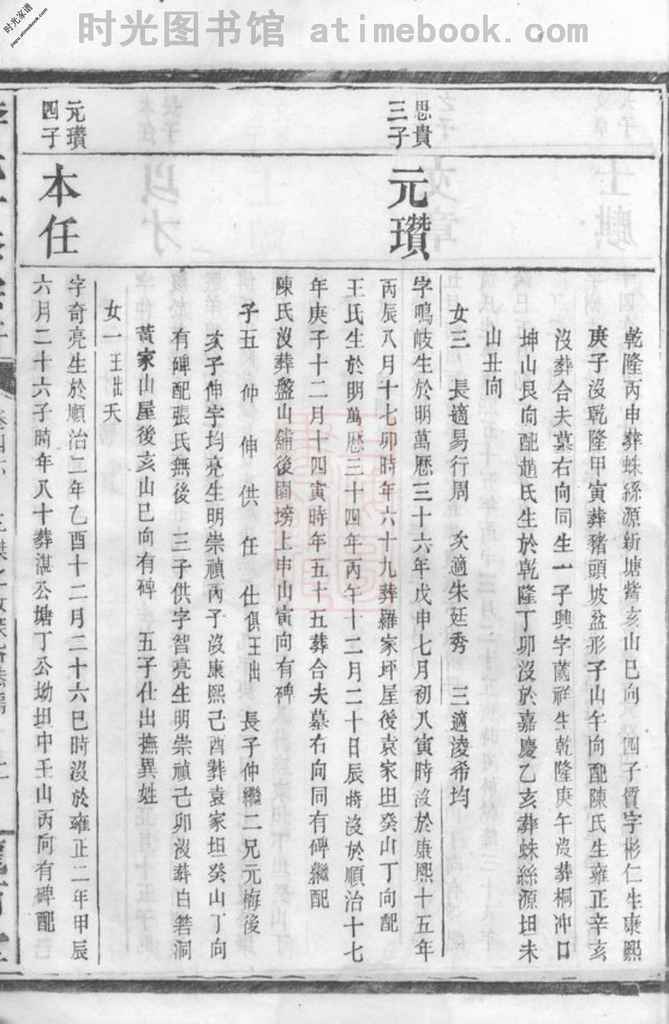 时光图书馆 atimebook.com
时光家谱
乾隆丙申葬蛛絲源新塘觜亥山巳向 四子質字彬仁生康熙
庚子沒乾隆甲寅葬豬頭坡盆形子山午向配陳氏生雍正辛亥
沒葬合夫墓右向同生一子興字藹祥生乾隆庚午沒葬桐冲口
坤山艮向配趙氏生於乾隆丁卯沒於嘉慶乙亥葬蛛絲源坦未
山丑向
女三 長適易行周 次適朱廷秀 三適淩希均
思貴
三子
元瓚
字鳴岐生於明萬曆三十六年戊申七月初八寅時沒於康熙十五年
丙辰八月十七卯時年六十九葬羅家坪屋後袁家坦癸山丁向配
王氏生於明萬曆三十四年丙午十二月二十日辰時沒於順治十七
年庚子十二月十四寅時年五十五葬合夫墓右向同有碑繼配
陳氏沒葬盤山鋪後園塝上申山寅向有碑
子五 仲 伸 供 任 仕俱王出 長子仲繼二兄元梅後
次子伸字均亮生明崇禎丙子沒康熙己酉葬袁家坦癸山丁向
有碑配張氏無後 三子供字智亮生明崇禎己卯沒葬白箬洞
黃家山屋後亥山巳向有碑 五子仕出撫異姓
女一王出夭
元瓚
四子
本任
字奇亮生於順治二年乙酉十二月二十六巳時沒於雍正二年甲辰
六月二十六子時年八十葬湛公塘丁公坳坦中壬山丙向有碑配